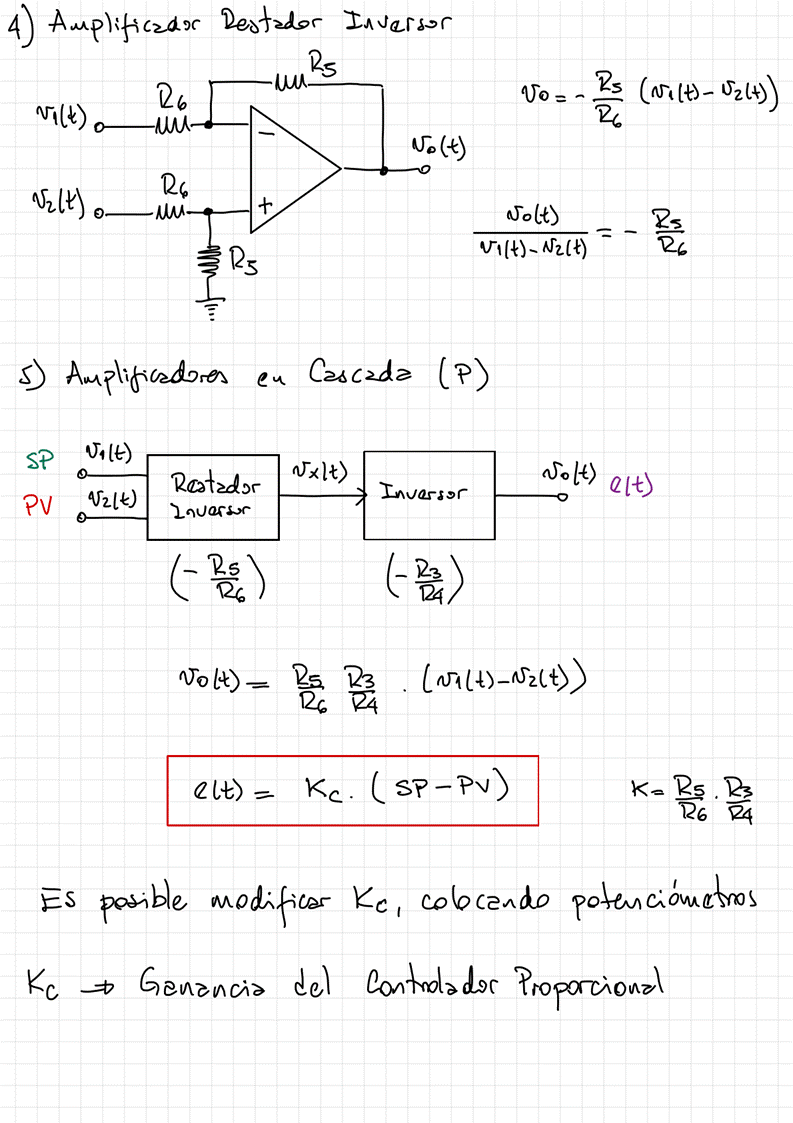 4) Amplificador Restador Inversor
R5
R6
v1(t)
−
v0(t)
v0 = - R5/R6 (v1(t) - v2(t))
R6
v2(t)
+
R5
v0(t)/v1(t) - v2(t) = - R5/R6
5) Amplificadores en Cascada (P)
SP v1(t)
PV v2(t)
Restador
Inversor
vx(t)
Inversor
v0(t) e(t)
(- R5/R6) (- R3/R4)
v0(t) = R5/R6 R3/R4 . (v1(t) - v2(t))
e(t) = Kc . (SP - PV)
K = R5/R6 . R3/R4
Es posible modificar Kc, colocando potenciómetros
Kc → Ganancia del Controlador Proporcional